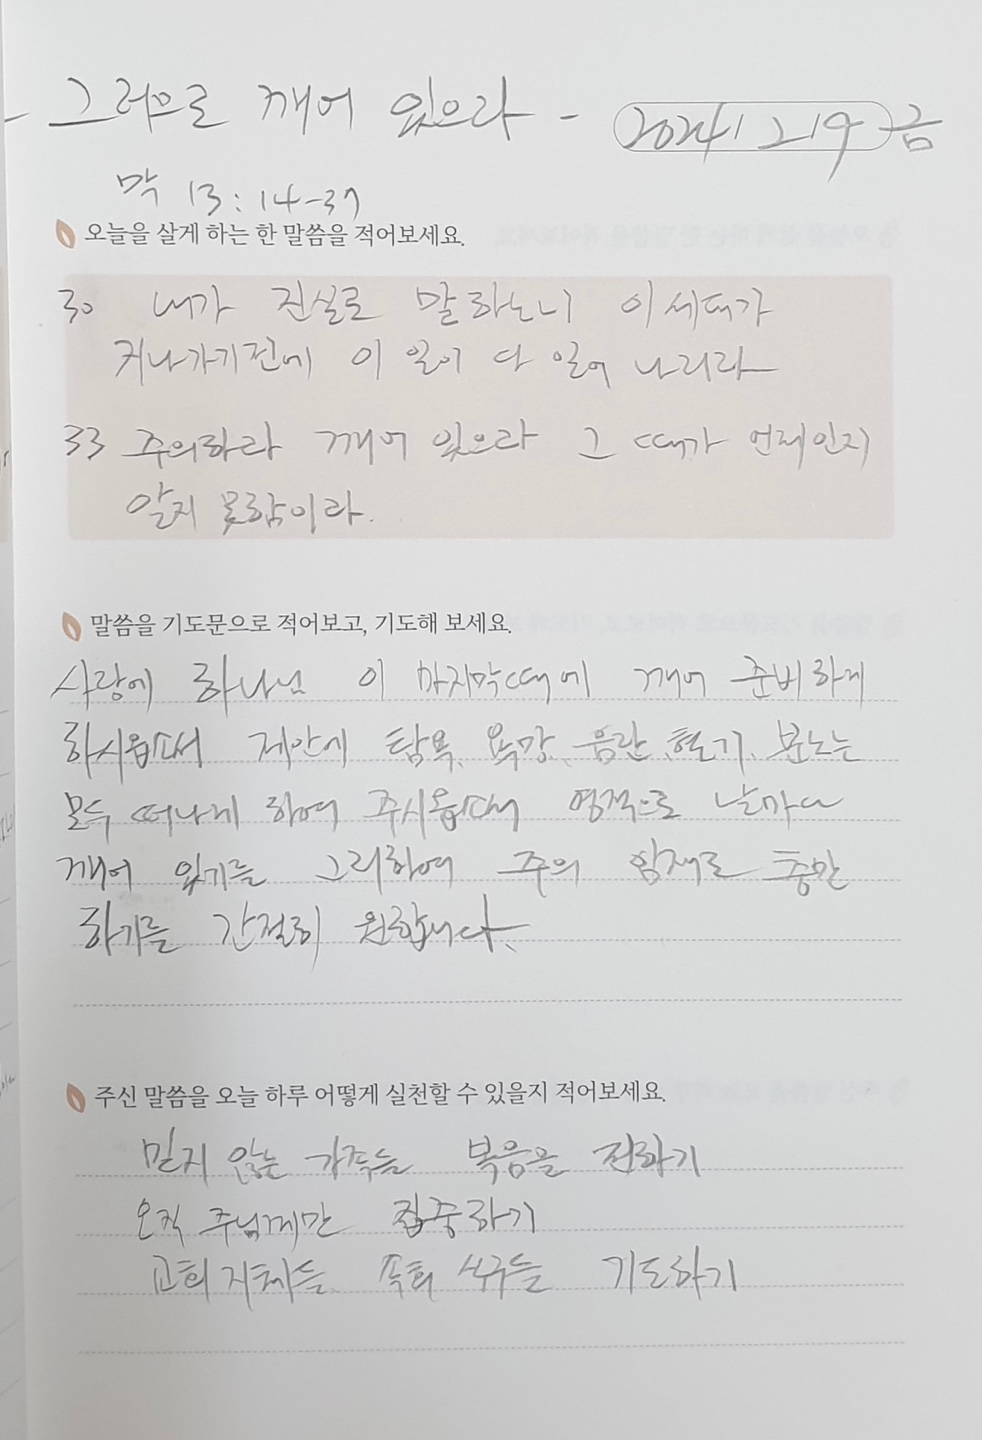 - 그러므로 깨어 있으라 - 2024 / 2 / 9 금
막 13:14-37
오늘을 살게 하는 한 말씀을 적어보세요.
30 내가 진실로 말하노니 이 세대가
지나가기전에 이 일이 다 일어 나리라
33 주의하라 깨어 있으라 그 때가 언제인지
알지 못함이라.
말씀을 기도문으로 적어보고, 기도해 보세요.
사랑에 하나님 이 마지막때에 깨어 준비하게
하시옵소서 제안에 탐욕, 욕망, 음란, 혈기, 분노는
모두 떠나게 하여 주시옵소서 영적으로 날마다
깨어 있기를 그리하여 주의 임재로 충만
하기를 간절히 원합니다.
주신 말씀을 오늘 하루 어떻게 실천할 수 있을지 적어보세요.
믿지 않는 가족들 복음을 전하기
오직 주님께만 집중하기
교회 지체들 속회 식구들 기도하기